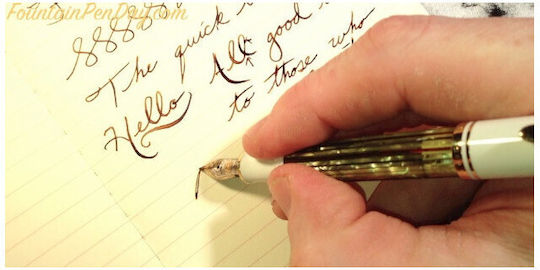 FountainPenDay.com
The quick
Hello
All good
to those who